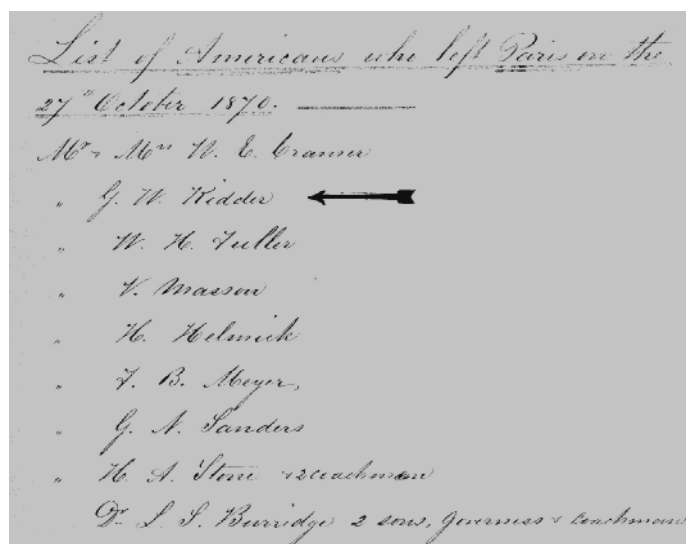 List of Americans who left Paris on the
27" October 1870.
Mr & Mrs W. E. Cramer
" G. W. Kidder
" W. H. Fuller
" V. Masson
" H. Helmick
" F. B. Meyer,
" G. N. Sanders
" H. A. Stone & coachman
Dr. L. S. Burridge 2 sons, governess & coachman